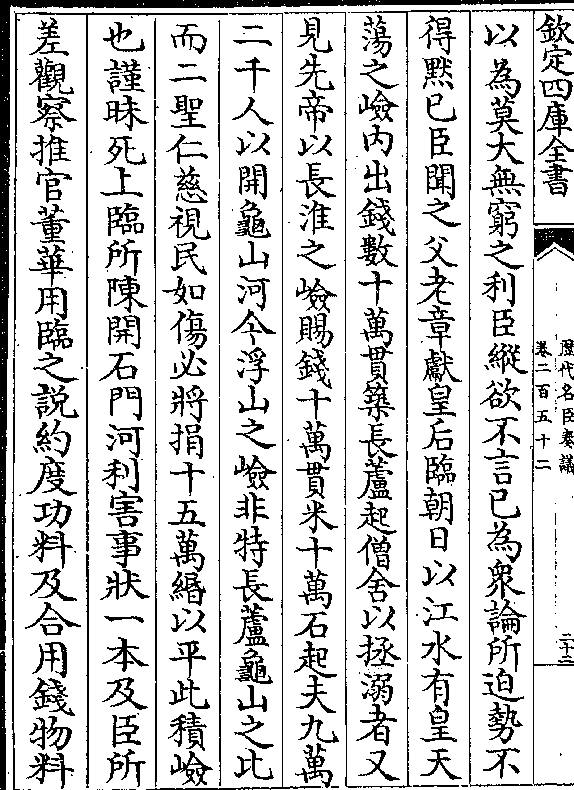 欽定四庫全書
歴代名臣奏議
卷二百五十二
二十三
以為莫大無窮之利臣縱欲不言已為衆論所迫勢不
得黙已臣聞之父老章獻皇后臨朝日以江水有皇天
蕩之嶮内出錢數十萬貫築長蘆起僧舍以拯溺者又
見先帝以長淮之嶮賜錢十萬貫米十萬石起夫九萬
二千人以開龜山河今浮山之嶮非特長蘆龜山之比
而二聖仁慈視民如傷必將捐十五萬緡以平此積嶮
也謹昧死上臨所陳開石門河利害事狀一本及臣所
差觀察推官董華用臨之説約度功料及合用錢物料